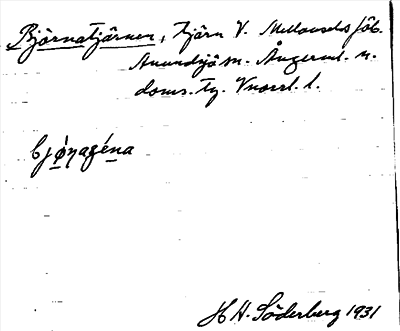 Björnatjärnen, tjärn V. Mellansels jstn.
Anundsjö sn. Ångerml. n.
doms. tg. Vnorrl. l.
bjö̀ɳagéna
H H. Söderberg 1931